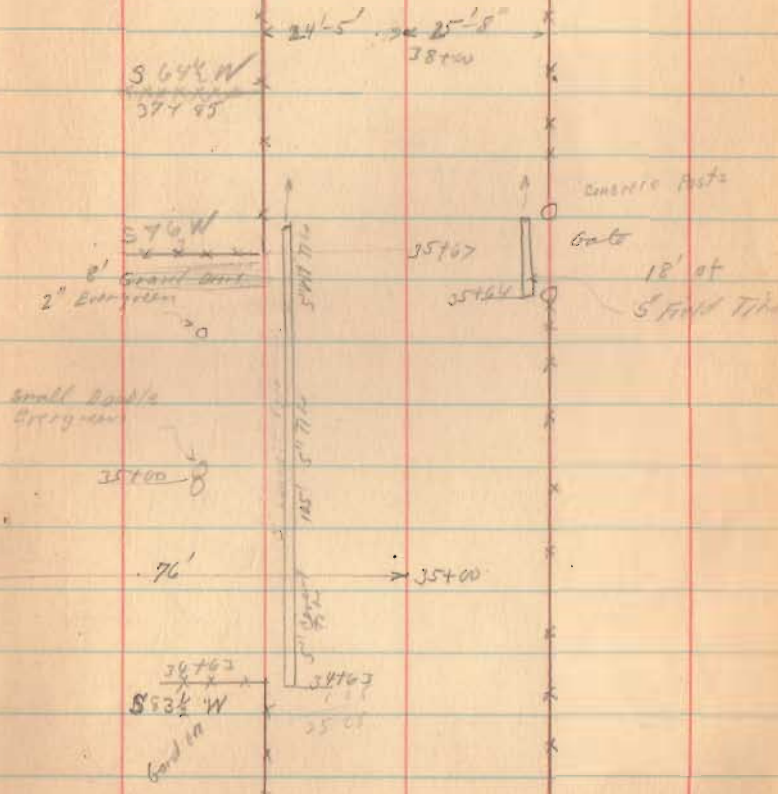 24'-5" 25'-8"
38+00
S 64½ W
37+85
Concrete Posts
S 76 W
35+67
Gate
8' Gravel Drive
18' of
2" Evergreen
35+64
5" Field Tile
5" Tile
Small Double
Evergreen
5" Tile
35+00
105'
76'
35+00
5"
34+63
34+63
S 83½ W
Garden